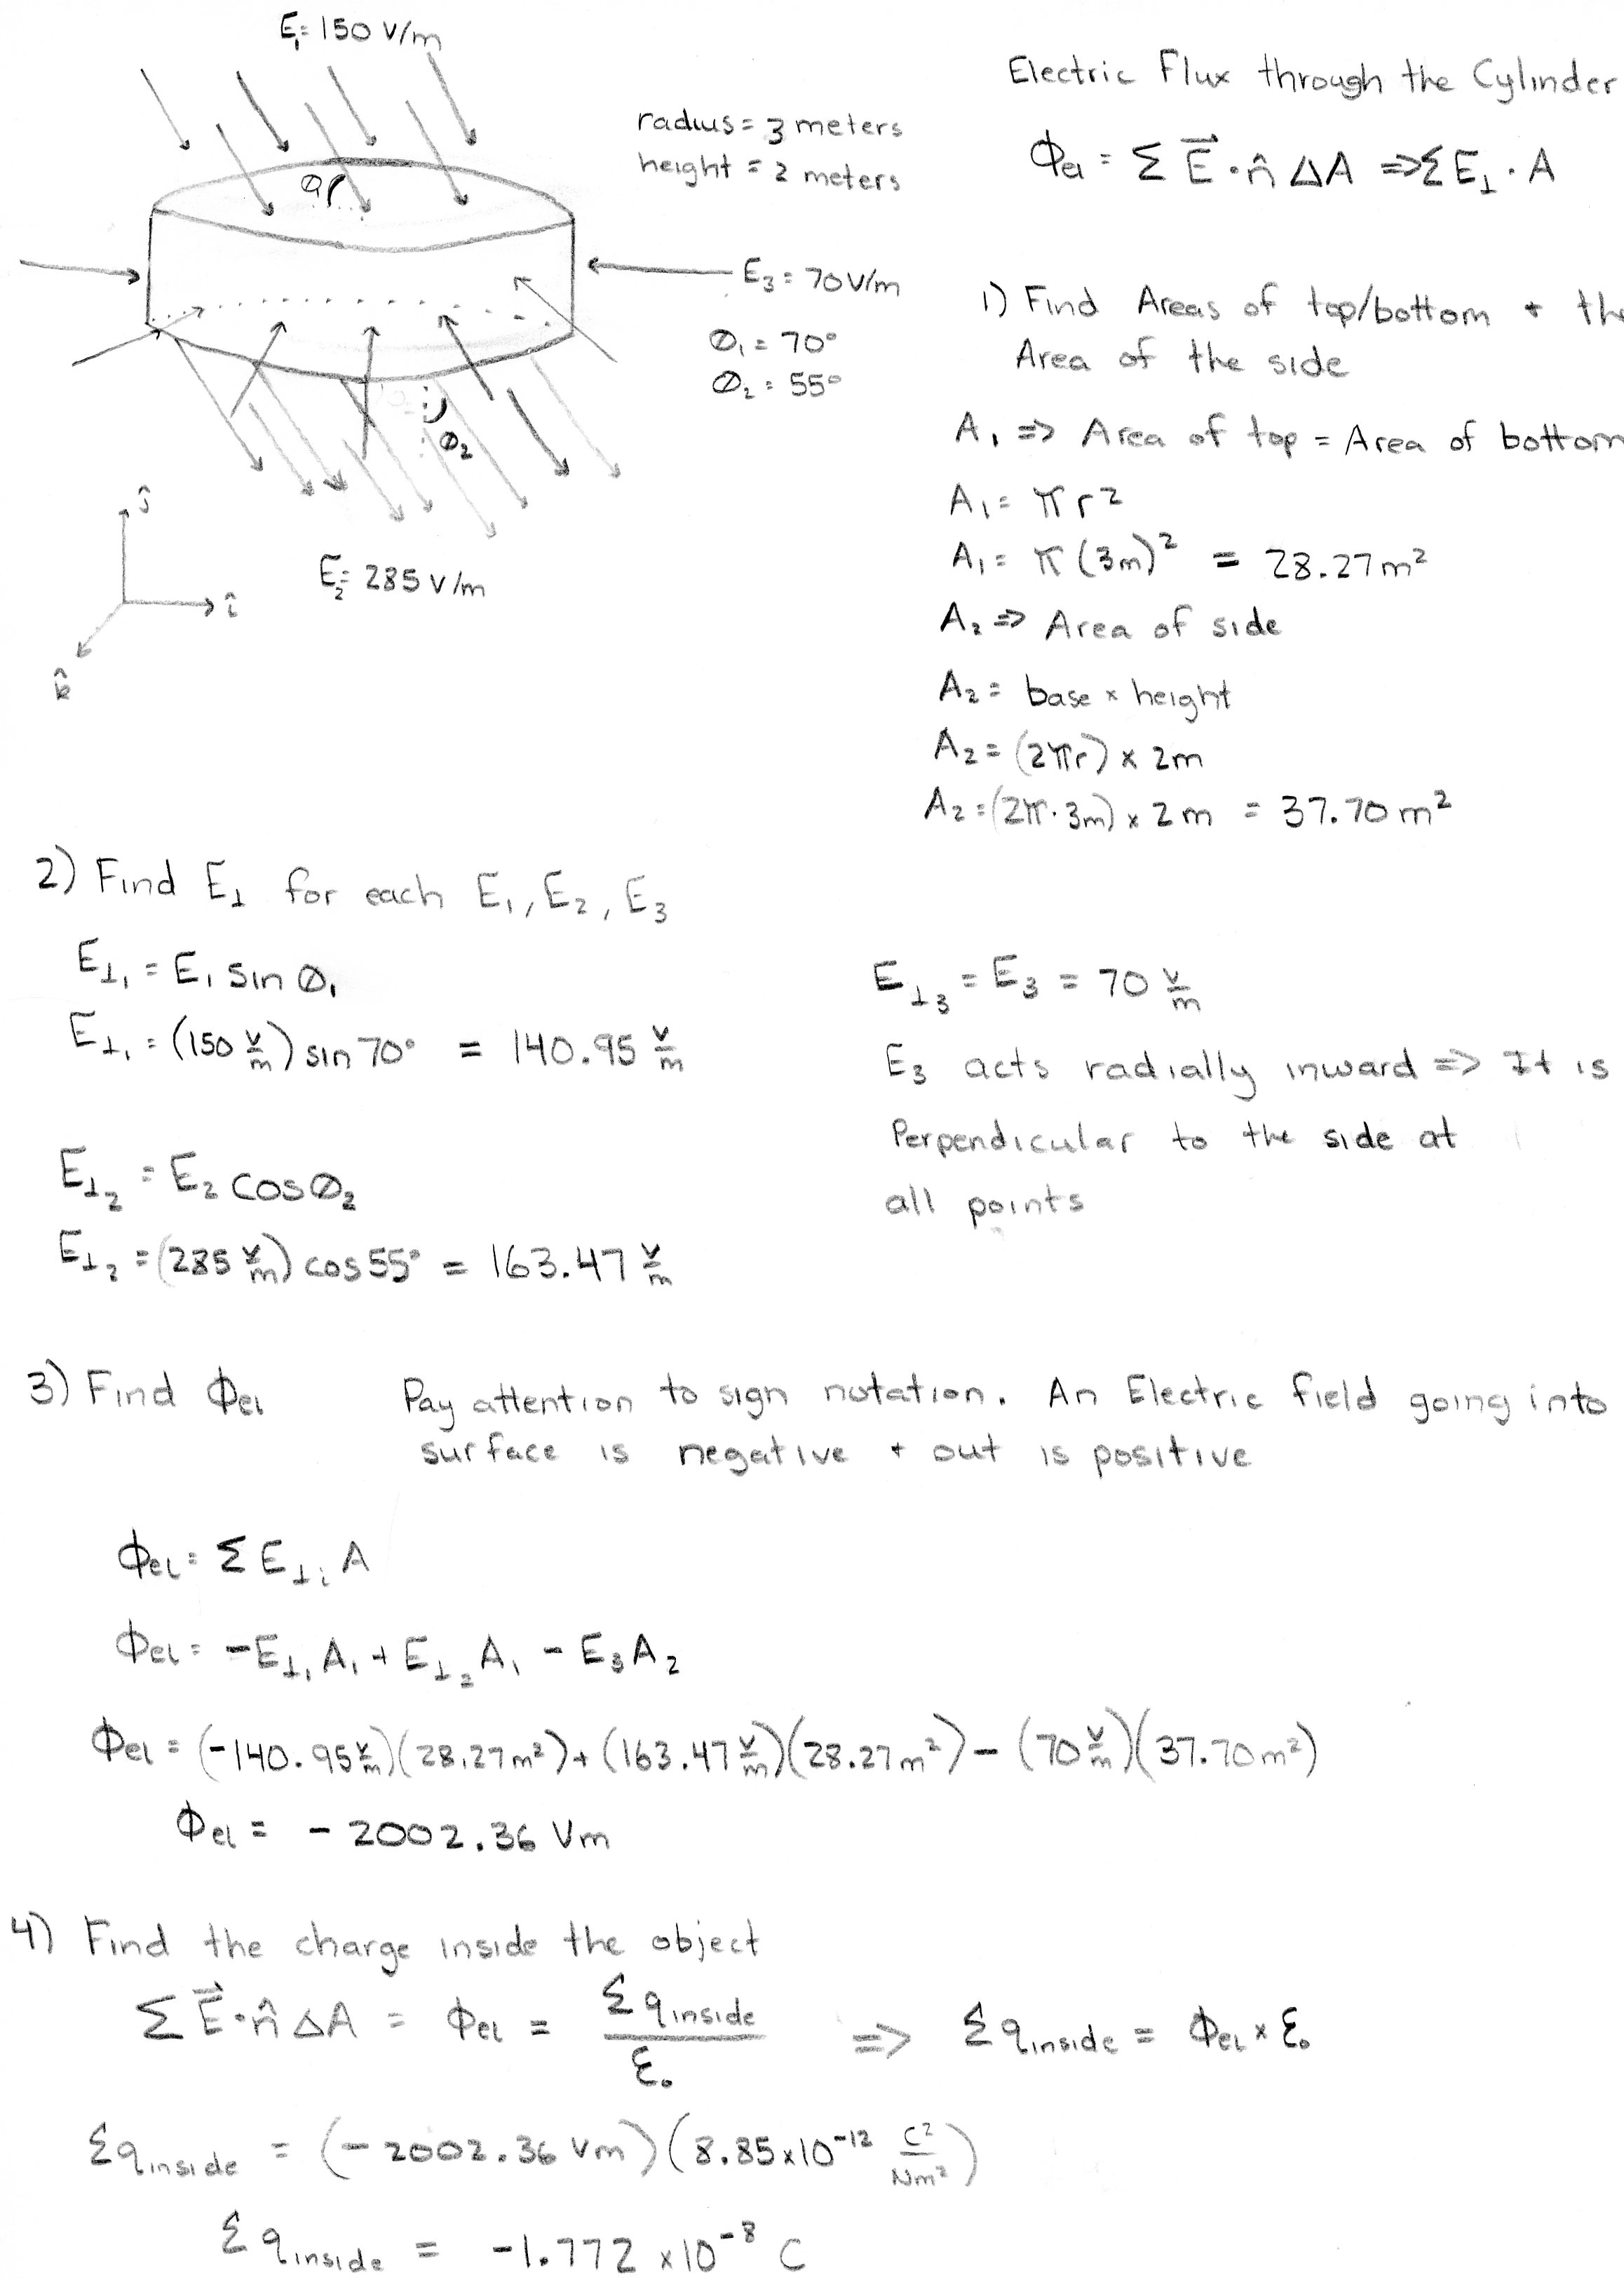 E₁= 150 V/m
radius = 3 meters
height = 2 meters
θ₁
E₃ = 70 V/m
θ₁ = 70°
θ₂ = 55°
θ₂
E₂= 285 V/m
ĵ
î
k̂
Electric Flux through the Cylinder
Φel = Σ E⃗ · n̂ ΔA => Σ E⊥ · A
1) Find Areas of top/bottom + the
Area of the side
A₁ => Area of top = Area of bottom
A₁ = πr²
A₁ = π(3m)² = 28.27m²
A₂ => Area of side
A₂ = base × height
A₂ = (2πr) × 2m
A₂ = (2π·3m) × 2m = 37.70 m²
2) Find E⊥ for each E₁, E₂, E₃
E⊥₁ = E₁ sin θ₁
E⊥₁ = (150 V/m) sin 70° = 140.95 V/m
E⊥₂ = E₂ cos θ₂
E⊥₂ = (285 V/m) cos 55° = 163.47 V/m
E⊥₃ = E₃ = 70 V/m
E₃ acts radially inward => It is
Perpendicular to the side at
all points
3) Find Φel
Pay attention to sign notation. An Electric field going into
surface is negative + out is positive
Φel = Σ E⊥ᵢ A
Φel = -E⊥₁ A₁ + E⊥₂ A₁ - E₃ A₂
Φel = (-140.95 V/m)(28.27m²) + (163.47 V/m)(28.27m²) - (70 V/m)(37.70m²)
Φel = - 2002.36 Vm
4) Find the charge inside the object
Σ E⃗ · n̂ ΔA = Φel = Σq inside / ε₀ => Σq inside = Φel × ε₀
Σq inside = (-2002.36 Vm)(8.85×10⁻¹² C²/Nm²)
Σq inside = -1.772 ×10⁻⁸ C